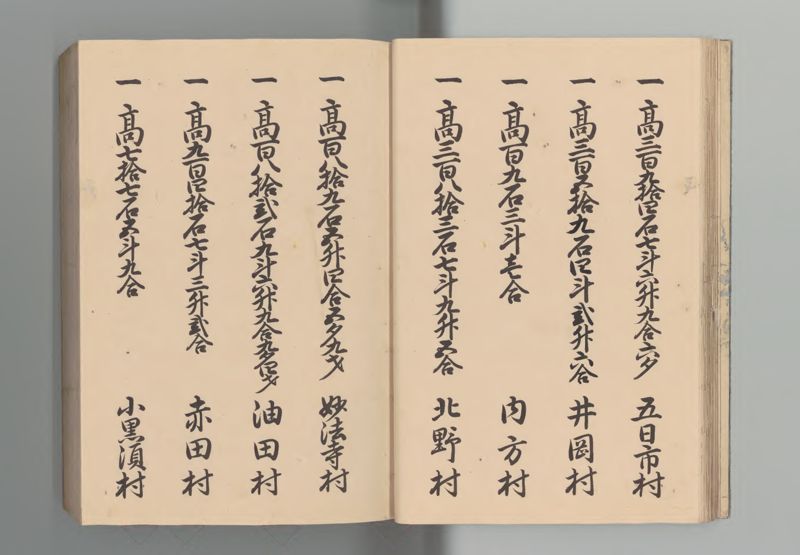 一 高三百九拾四石七斗六升九合六夕 五日市村
一 高三百五拾九石四斗弐升六合 井岡村
一 高百九石三斗壱合 内方村
一 高三百八拾三石七斗九升五合 北野村
一 高百八拾九石五升四合五夕九才 妙法寺村
一 高百八拾弐石九斗六升九合九夕四才 油田村
一 高九百四拾石七斗三升弐合 赤田村
一 高七拾七石五斗九合 小黒須村